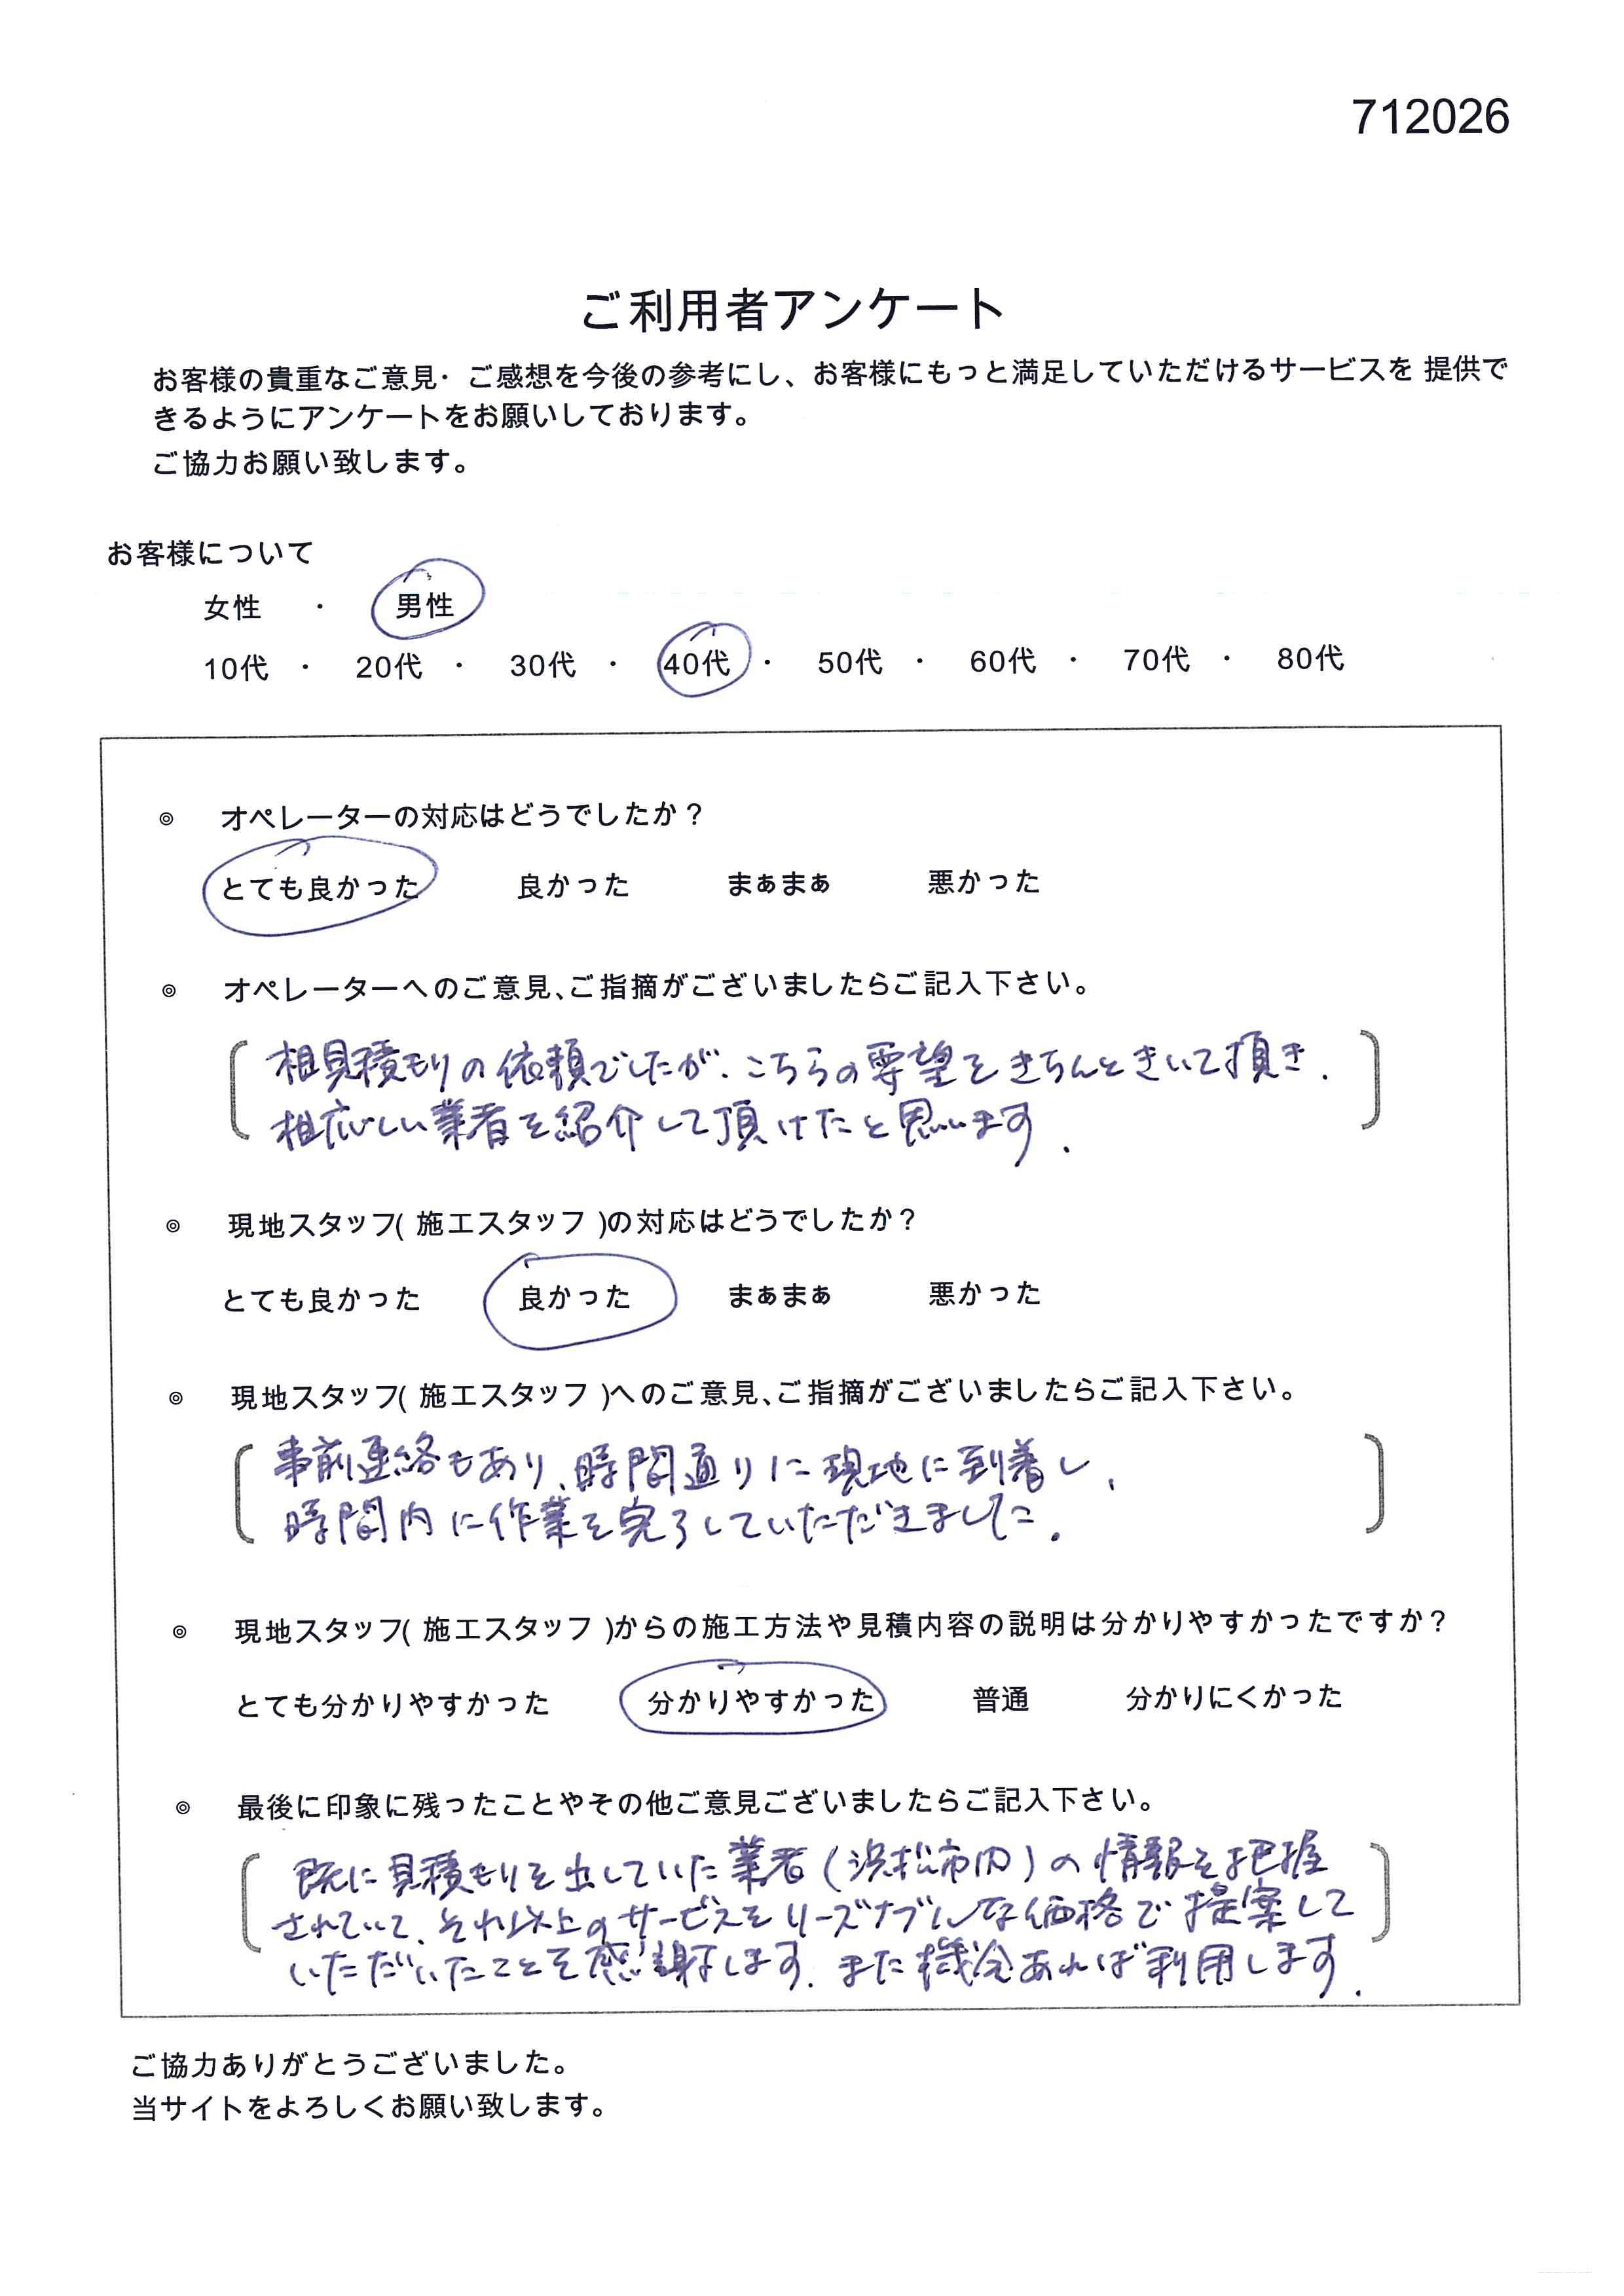 712026
ご利用者アンケート
お客様の貴重なご意見・ご感想を今後の参考にし、お客様にもっと満足していただけるサービスを 提供で
きるようにアンケートをお願いしております。
ご協力お願い致します。
お客様について
女性 ・ 男性
10代 ・ 20代 ・ 30代 ・ 40代 ・ 50代 ・ 60代 ・ 70代 ・ 80代
◎ オペレーターの対応はどうでしたか？
とても良かった 良かった まぁまぁ 悪かった
◎ オペレーターへのご意見、ご指摘がございましたらご記入下さい。
相見積もりの依頼でしたが、こちらの要望をきちんときいて頂き、
相応しい業者を紹介して頂けたと思います.
◎ 現地スタッフ( 施工スタッフ )の対応はどうでしたか？
とても良かった 良かった まぁまぁ 悪かった
◎ 現地スタッフ( 施工スタッフ )へのご意見、ご指摘がございましたらご記入下さい。
事前連絡もあり、時間通りに現地に到着し、
時間内に作業を完了していただきました.
◎ 現地スタッフ( 施工スタッフ )からの施工方法や見積内容の説明は分かりやすかったですか？
とても分かりやすかった 分かりやすかった 普通 分かりにくかった
◎ 最後に印象に残ったことやその他ご意見ございましたらご記入下さい。
既に見積もりを出していた業者(浜松市内)の情報を把握
されていて、それ以上のサービスをリーズナブルな価格で提案して
いただいたことを感謝します. また機会あれば利用します.
ご協力ありがとうございました。
当サイトをよろしくお願い致します。